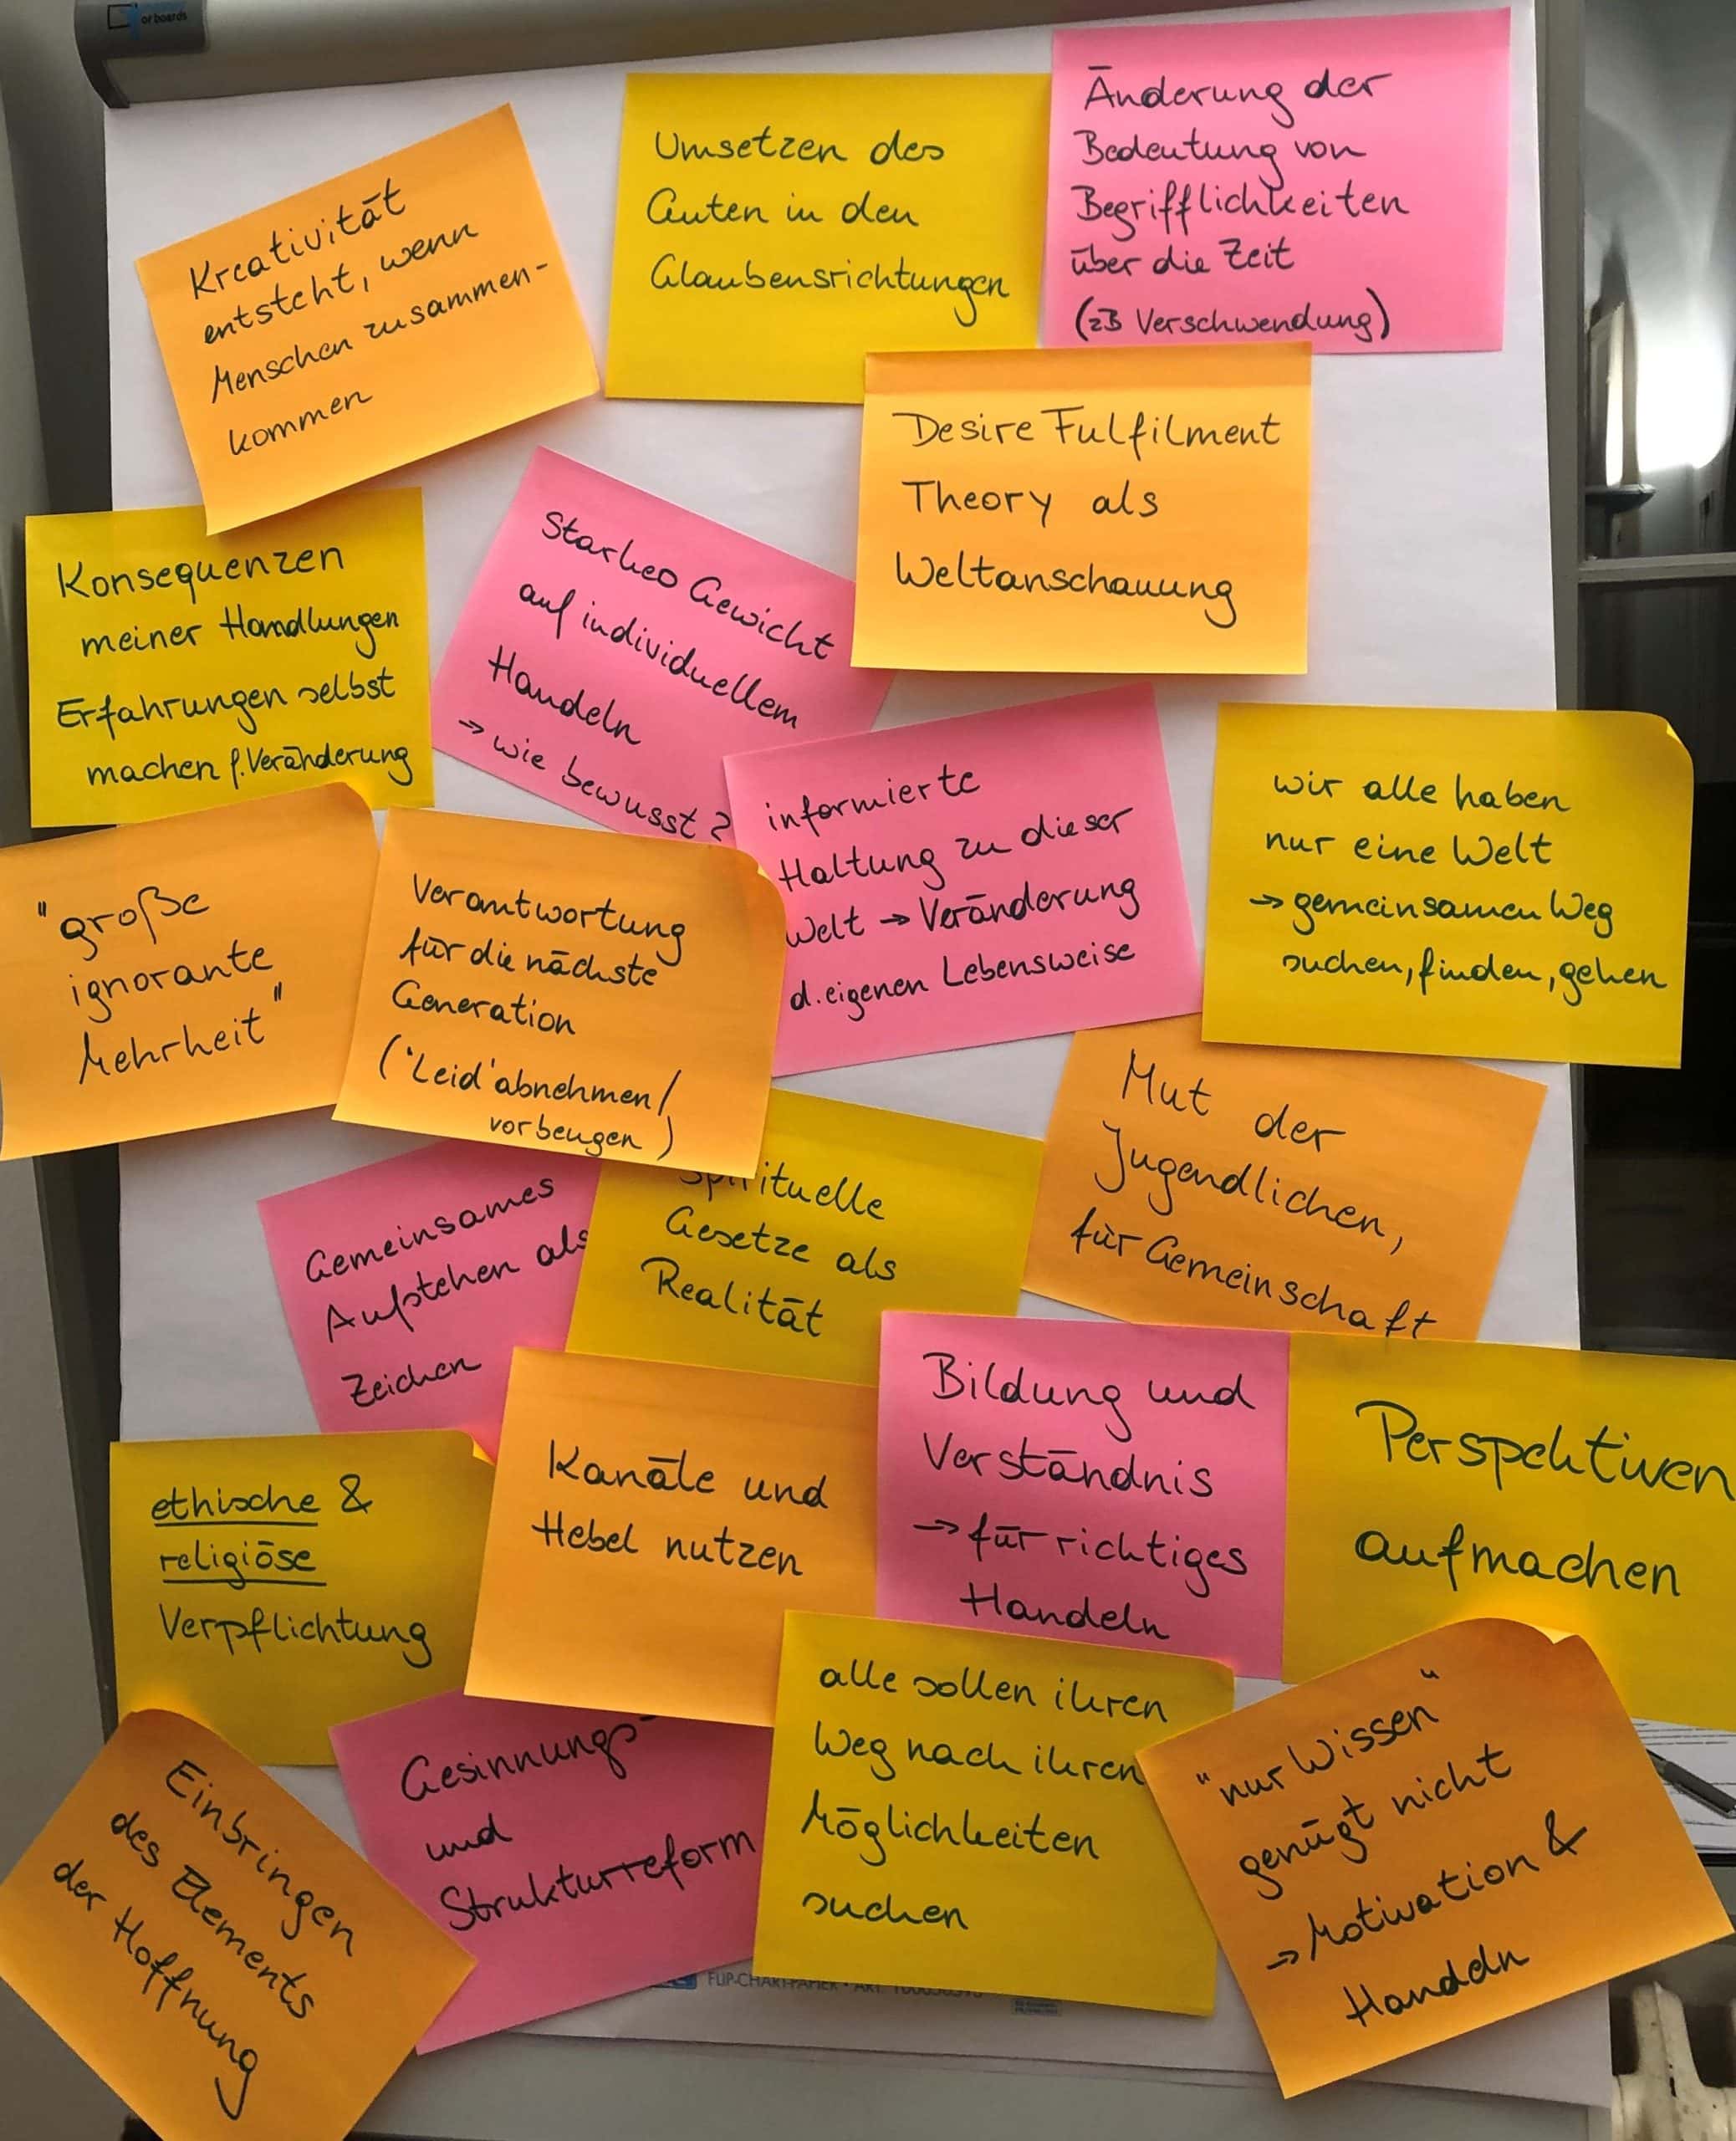 of boards
Kreativität
entsteht, wenn
Menschen zusammen-
kommen
Umsetzen des
Guten in den
Glaubensrichtungen
Änderung der
Bedeutung von
Begrifflichkeiten
über die Zeit
(zB Verschwendung)
Desire Fulfilment
Theory als
Weltanschauung
Konsequenzen
meiner Handlungen
Erfahrungen selbst
machen f. Veränderung
Starkes Gewicht
auf individuellem
Handeln
→ wie bewusst?
informierte
Haltung zu dieser
Welt → Veränderung
d. eigenen Lebensweise
wir alle haben
nur eine Welt
→ gemeinsamen Weg
suchen, finden, gehen
"große
ignorante
Mehrheit"
Verantwortung
für die nächste
Generation
('Leid' abnehmen/
vorbeugen)
Mut der
Jugendlichen,
für Gemeinschaft
Gemeinsames
Aufstehen als
Zeichen
Spirituelle
Gesetze als
Realität
Bildung und
Verständnis
→ für richtiges
Handeln
Perspektiven
aufmachen
ethische &
religiöse
Verpflichtung
Kanäle und
Hebel nutzen
alle sollen ihren
Weg nach ihren
Möglichkeiten
suchen
"nur Wissen"
genügt nicht
→ Motivation &
Handeln
Einbringen
des Elements
der Hoffnung
Gesinnungs-
und
Strukturreform
FLIP-CHART-PAPIER